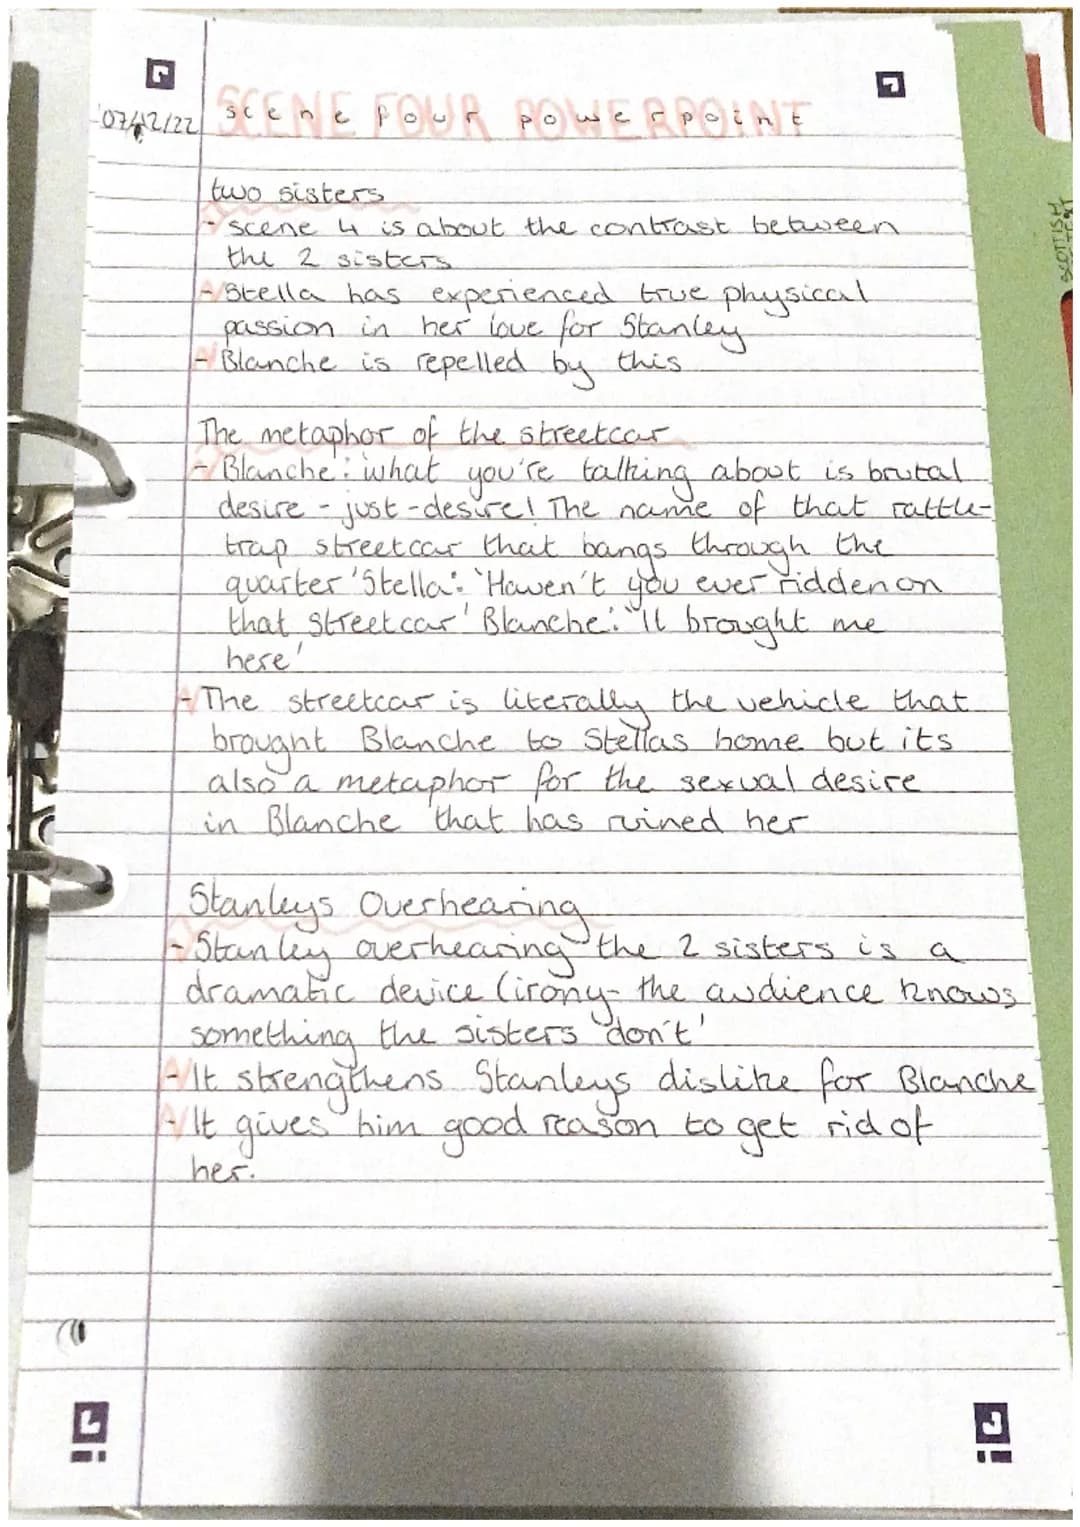 SCENE FOUR POWERPOINT
07/12/22 scene four powerpoint
two sisters
- scene 4 is about the contrast between
the 2 sisters
- Stella has experienced true physical
passion in her love for Stanley
- Blanche is repelled by this
The metaphor of the streetcar
- Blanche: 'what you're talking about is brutal
desire - just - desire! The name of that rattle-
trap streetcar that bangs through the
quarter' Stella: 'Haven't you ever ridden on
that streetcar' Blanche: 'It brought me
here'
- The streetcar is literally the vehicle that
brought Blanche to Stellas home but its
also a metaphor for the sexual desire
in Blanche that has ruined her
Stanleys Overhearing
- Stanley overhearing the 2 sisters is a
dramatic device (irony - the audience knows
something the sisters don't'
- It strengthens Stanleys dislike for Blanche
- It gives him good reason to get rid of
her.
SCOTTISH